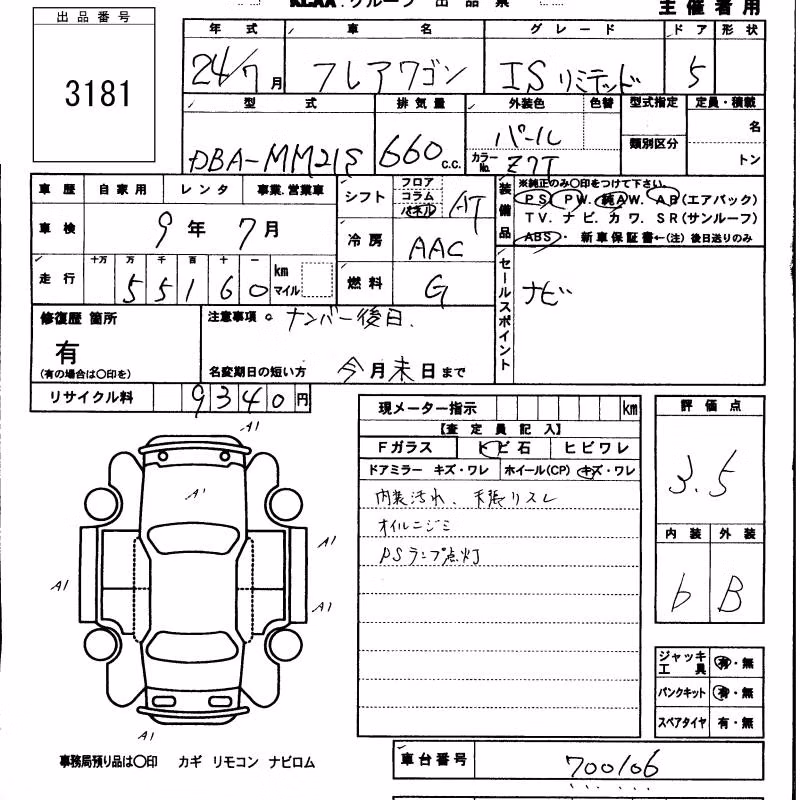 KCAA.グループ 出品票
主催者用
出品番号
3181
年式 車名 グレード ドア 形状
24/7月 フレアワゴン ISリミテッド 5
型式 排気量 外装色 色替 型式指定 定員・積載
DBA-MM21S 660 c.c. パール 類別区分 名
カラーNo. Z7T トン
車歴 自家用 レンタ 事業.営業車
車検 9年7月
走行 十万 万 千 百 十 一 km マイル
55160
シフト フロア コラム パネル AT
冷房 AAC
燃料 G
装備品 ※純正のみ〇印をつけて下さい。
PS. PW. 純AW. AB(エアバック)
TV. ナビ. カワ. SR(サンルーフ)
ABS・ 新車保証書←(注)後日送りのみ
セールスポイント ナビ
修復歴 箇所
有
(有の場合は〇印を)
注意事項 。ナンバー後日.
名変期日の短い方 今月末日まで
リサイクル料 9340円
現メーター指示 km
【査定員記入】
Fガラス トビ石 ヒビワレ
ドアミラー キズ・ワレ ホイール(CP) キズ・ワレ
内装汚れ、天張リスレ
オイルニジミ
PSランプ点灯
評価点
3.5
内装 外装
b B
ジャッキ工具 有・無
パンクキット 有・無
スペアタイヤ 有・無
A1
A1
A1
A1
A1
A1
事務局預り品は〇印 カギ リモコン ナビロム
車台番号 700106